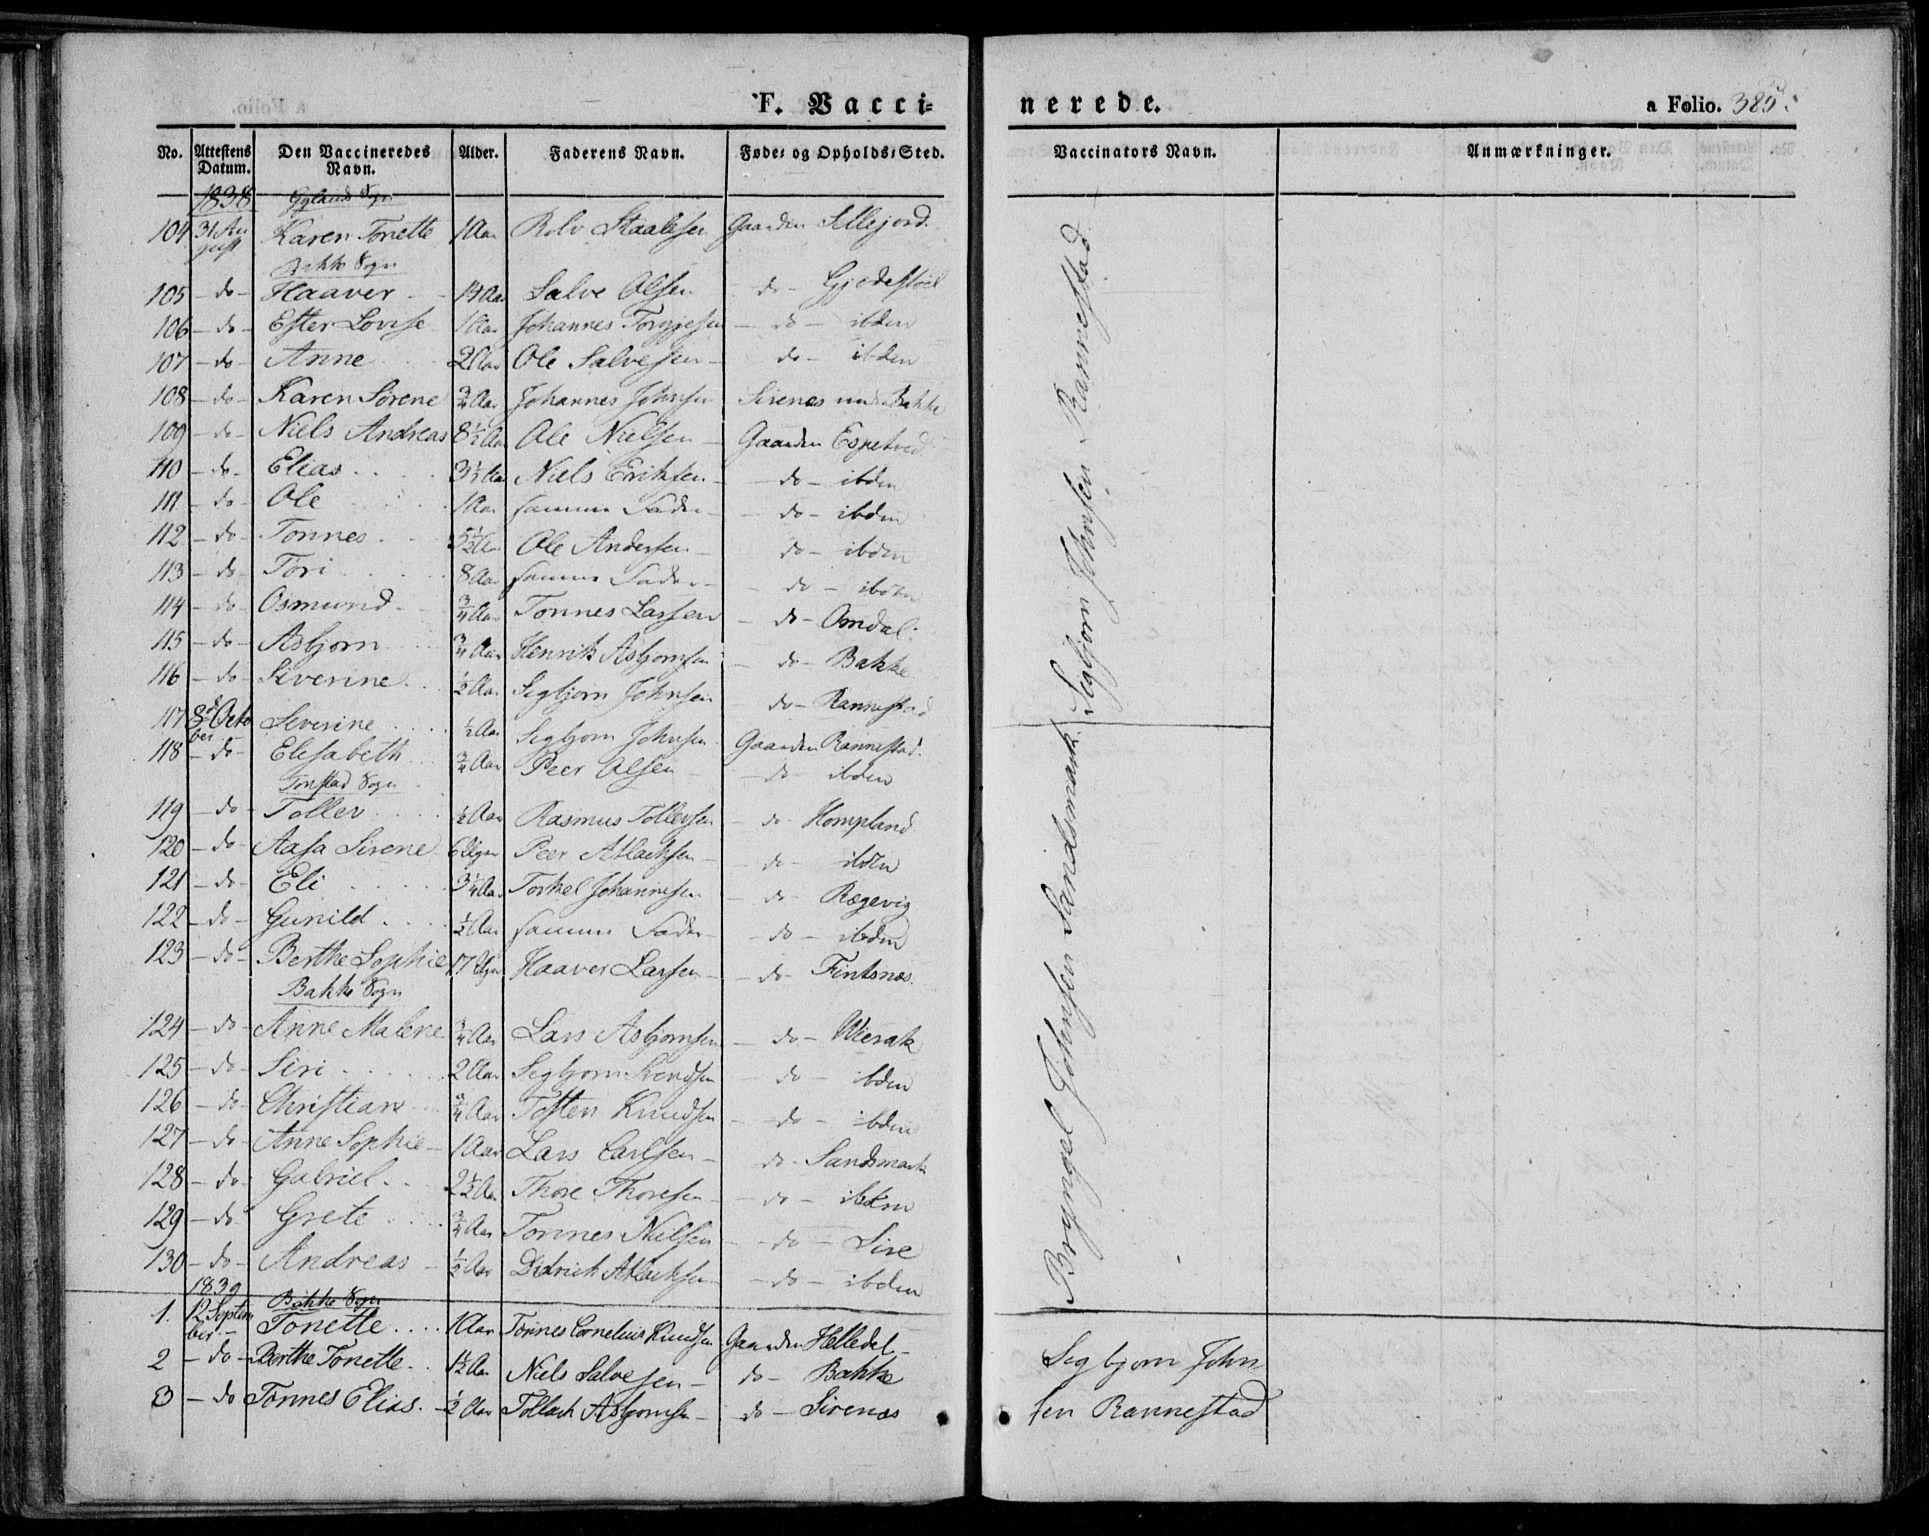 F. Vacci-
nerede.
a Folio. 385.
No. Attestens Datum. Den Vaccineredes Navn. Alder. Faderens Navn. Føde- og Opholds-Sted. Vaccinators Navn. Anmærkninger.
1838 Gylands Sogn
104 31 August Karen Tonette 1 Aar Rolv Staalesen Gaarden Sellejord.
Bakke Sogn
105 - do - Haaver 14 Aar Salve Olsen - do - Gjedestöel
106 - do - Ester Lovise 1 Aar Johannes Torgjesen - do - ibden
107 - do - Anne 2 Aar Ole Salvesen - do - ibden
108 - do - Karen Sörene 3/4 Aar Johannes Johnsen Sirenæs under Bakke
109 - do - Niels Andreas 8 1/2 Aar Ole Nielsen - Gaarden Espetved
110 - do - Elias 3 1/2 Aar Niels Eriksen - do - ibden
111 - do - Ole 1 Aar samme Fader - do - ibden
112 - do - Tönnes 5 1/2 Aar Ole Andersen - do - ibden
113 - do - Tori 8 Aar samme Fader - do - ibden
114 - do - Osmund 3/4 Aar Tönnes Larsen - do - Omdal
115 - do - Asbjörn 3/4 Aar Henrik Asbjörnsen - do - Bakke
116 - do - Siverine 1/2 Aar Segbjörn Johnsen - do - Rannestad
117 8de October Severine 1/2 Aar Segbjörn Johnsen Gaarden Rannestad.
118 - do - Elisabeth 3/4 Aar Peer Olsen - do - ibden
Tonstad Sogn
119 - do - Tollev 1/2 Aar Rasmus Tollevsen - do - Hompland
120 - do - Aasa Sirene 6 Uger Peer Atlaksen - do - ibden
121 - do - Eli 3 1/4 Aar Torkel Johannesen - do - Rægevig
122 - do - Gunild 1/2 Aar samme Fader - do - ibden
123 - do - Berthe Sophie 17 Uger Haaver Larsen - do - Fintsnæs.
Bakke Sogn
124 - do - Anne Malene 3/4 Aar Lars Asbjörnsen - do - Öiesrak
125 - do - Siri 2 Aar Segbjörn Svendsen - do - ibden
126 - do - Christian 3/4 Aar Tosten Knudsen - do - ibden
127 - do - Anne Sophie - 1 Aar Lars Carlsen - do - Sandsmark
128 - do - Gabriel 2 1/2 Aar Thore Thoresen - do - ibden
129 - do - Grete 3/4 Aar Tönnes Nielsen - do - Sire
130 - do - Andreas - 1/2 Aar Didrich Atlacksen - do - ibden
1839 Bakke Sogn
1. 12 September - Tonette 1 Aar Tönnes Cornelius Knudsen Gaarden Helledal -
2 - do - Berthe Tonette 1 1/2 Aar Niels Salvesen - do - Bakke
3 - do Tönnes Elias. - 1/2 Aar Tollack Asbjörnsen - do - Sirenæs
Segbjörn Johnsen Rannestad
Bryngel Johnsen Sandsmark.
Segbjörn John
sen Rannestad